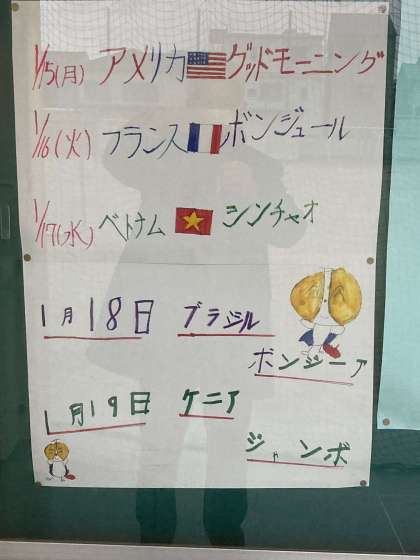 1/15(月) アメリカ グッドモーニング
1/16(火) フランス ボンジュール
1/17(水) ベトナム シンチャオ
1月18日 ブラジル
ボンジーア
1月19日 ケニア
ジャンボ